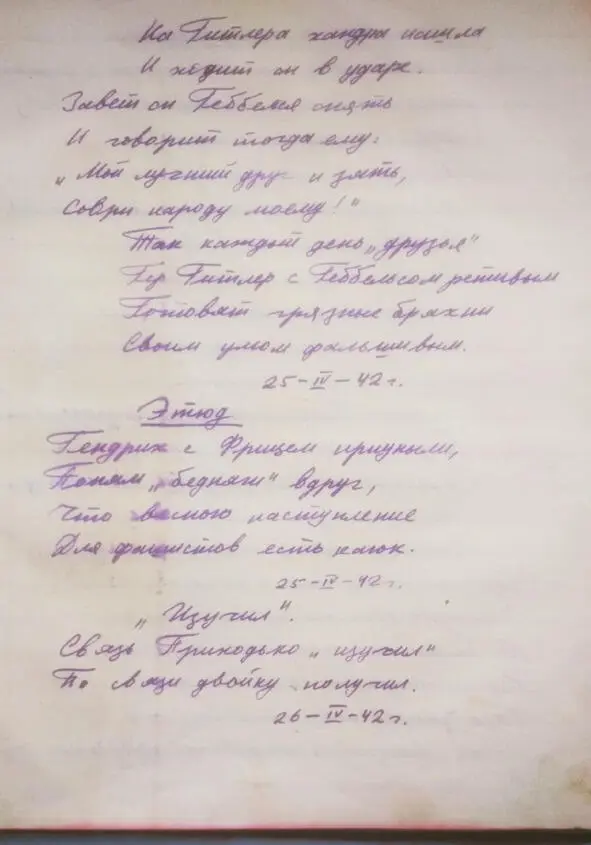 На Гитлера хандра нашла
И ходит он в ударе.
Завет он Геббельса опять
И говорит тогда ему:
„Мой лучший друг и зять,
Соври народу моему!"
Так каждый день „друзья"
Гер Гитлер с Геббельсом ретивым
Готовят грязные брахни
Своим умом фальшивым.
25-IV-42 г.
Этюд
Гендрих с Фрицем приуныли,
Поняли „бедняги" вдруг,
Что весною наступление
Для фашистов есть каюк.
25-IV-42 г.
„Изучил".
Связь Приходько „изучил"
По связи двойку получил.
26-IV-42 г.